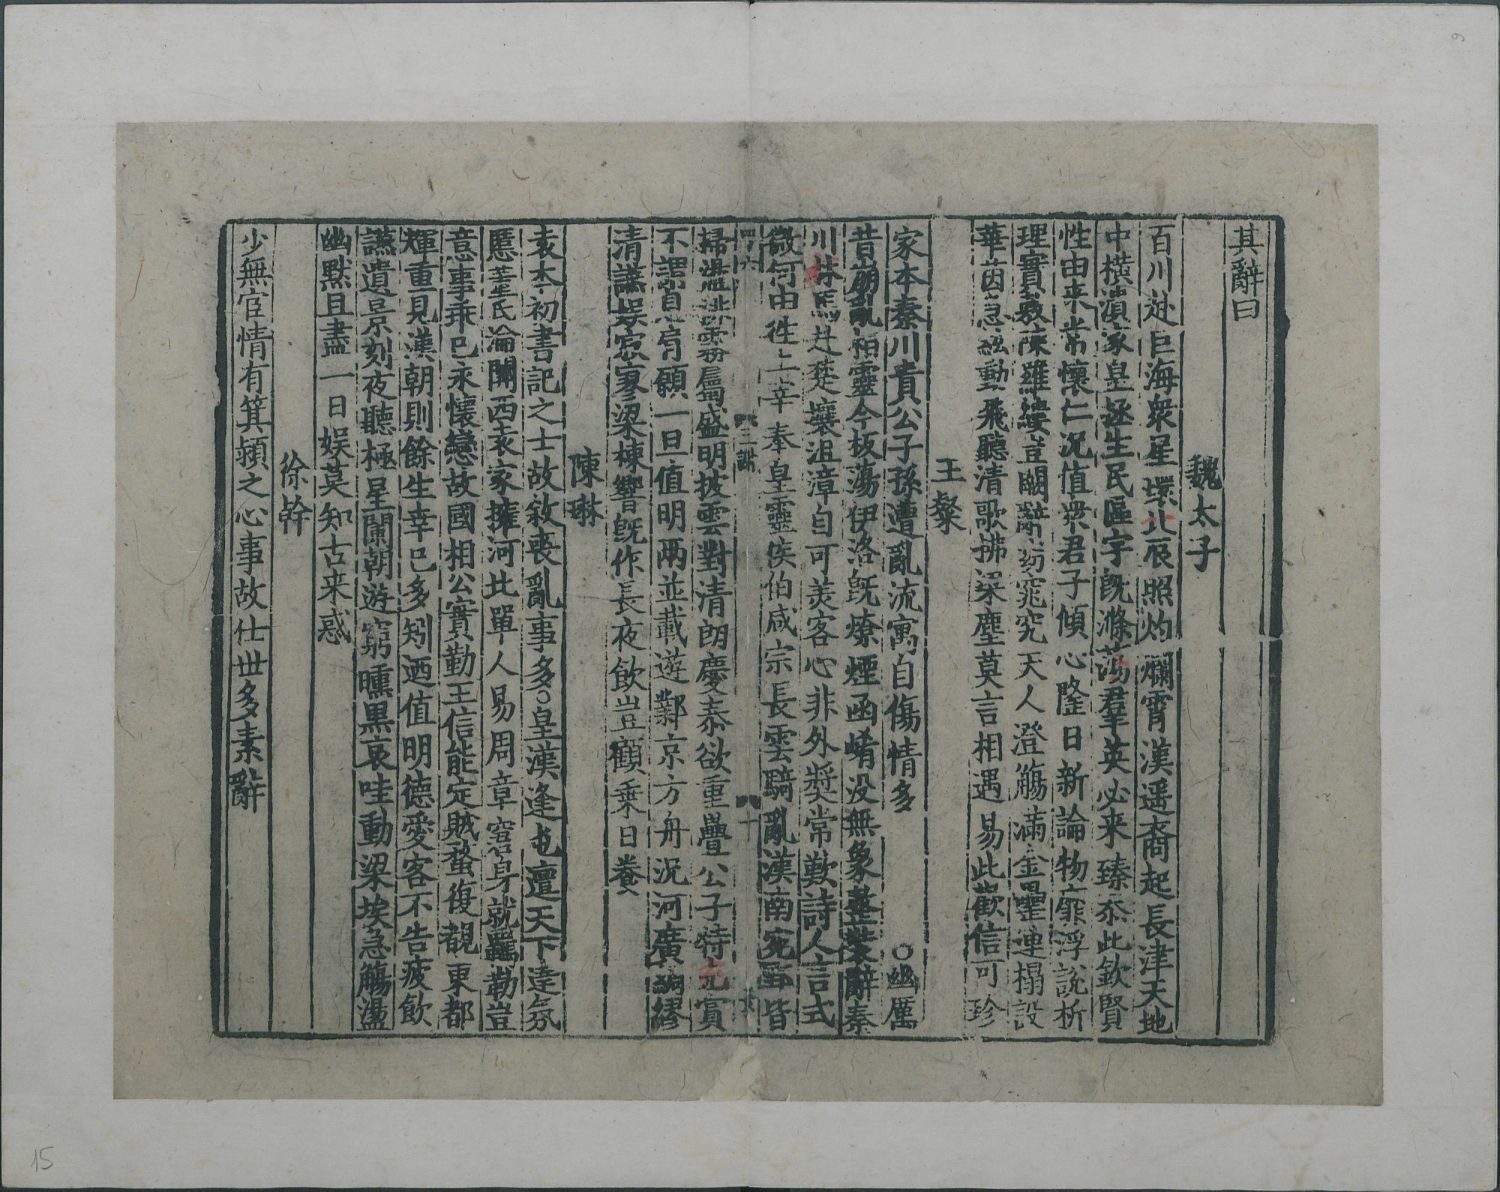 其辭曰
魏太子
百川赴巨海衆星環北辰照灼爛霄漢遥裔起長津天地
中橫潰家皇拯生民區宇旣滌蕩羣英必来臻忝此欽賢
性由来常懷仁况值衆君子傾心隆日新論物靡浮說析
理實敷陳羅縷豈闕辭窈窕究天人澄觴滿金罍連榻設
華茵急絃動飛聽清歌拂梁塵莫言相遇易此歡信可珍
王粲
家本秦川貴公子孫遭亂流寓自傷情多
○幽厲
昔崩亂桓靈今板蕩伊洛旣燎煙函崤没無象整裝辭秦
川秣馬赴楚壤沮漳自可美客心非外奬常歎詩人言式
微何由徃上宰奉皇靈侯伯咸宗長雲騎亂漢南宛郢皆
四六 三謝 十
掃盪排霧屬盛明披雲對清朗慶泰欲重疊公子特先賞
不謂息肩願一旦值明兩並載遊鄴京方舟汎河廣綢繆
清讌娱寂寥梁棟響旣作長夜飲豈顧乗日養
陳琳
袁本初書記之士故敘喪亂事多○皇漢逢屯邅天下遭氛
慝董氏淪關西袁家擁河北單人易周章窘身就羈勒豈
意事乖巳永懷戀故國相公實勤王信能定賊蝥復覩東都
輝重見漢朝則餘生幸巳多矧迺值明德愛客不告疲飲
讌遺景刻夜聽極星闌朝遊窮曛黒哀哇動梁埃急觴盪
幽黙且盡一日娱莫知古来惑
徐幹
少無宦情有箕潁之心事故仕世多素辭
15